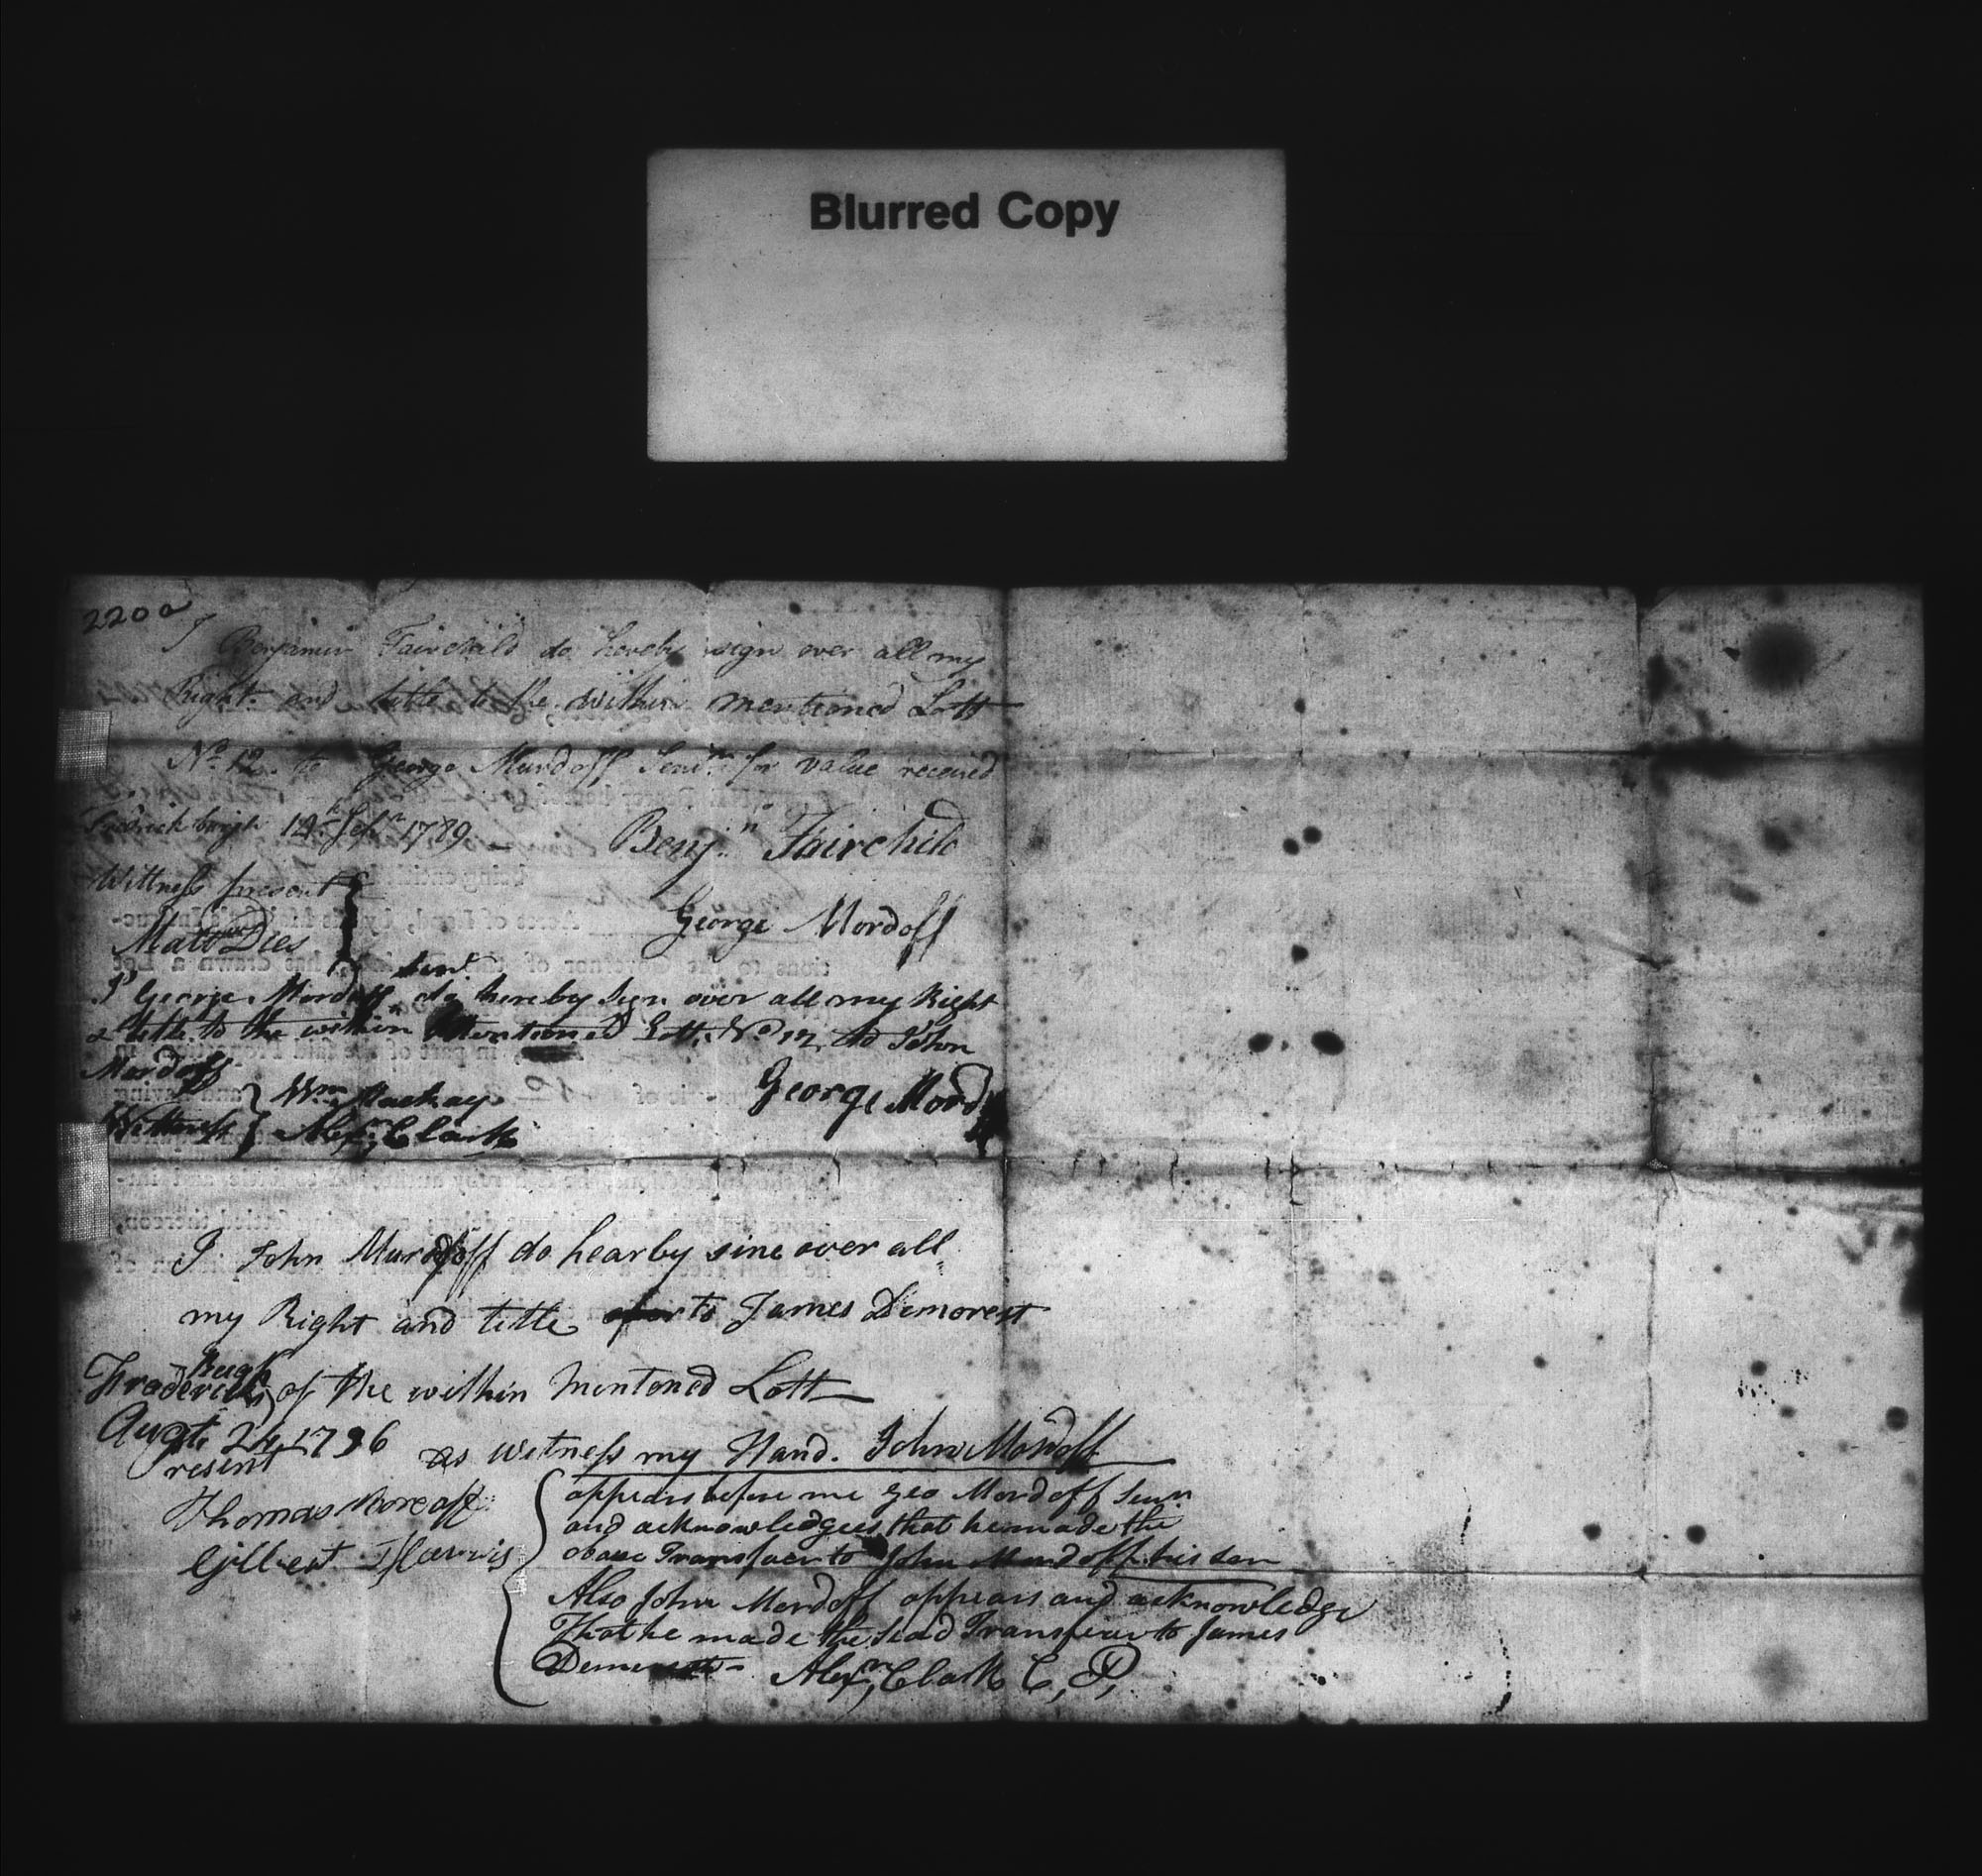 Blurred Copy
220a
I Benjamin Fairchild do hereby sign over all my
Right and title to the within mentioned Lott
No. 12. to George Murdoff Senr. for value received
Fredrick burgh 12th Sepr 1789
Benjn Fairchild
Wittness present
George Mordoff
Mattw Dies
senr
I George Mordoff do hereby sign over all my Right
& title to the within Mentioned Lott No 12 to John
Mordoff
George Mord
Wittness } Wm Mackay
Alexr Clark
I John Murdoff do hearby sine over all
my Right and title to James Demorest
Fradericks Burgh of the within Mentoned Lott
Augt 24 1796 as witness my Hand. John Mordoff
Present
Thomas
Gilbert
appears before me Geo Mordoff Senr
and acknowledges that he made the
above Transfaer to John Mordoff his son
Also John Mordoff appears and acknowledge
That he made the Sead Transfaer to James
Demorest - Alexr Clark C, P,